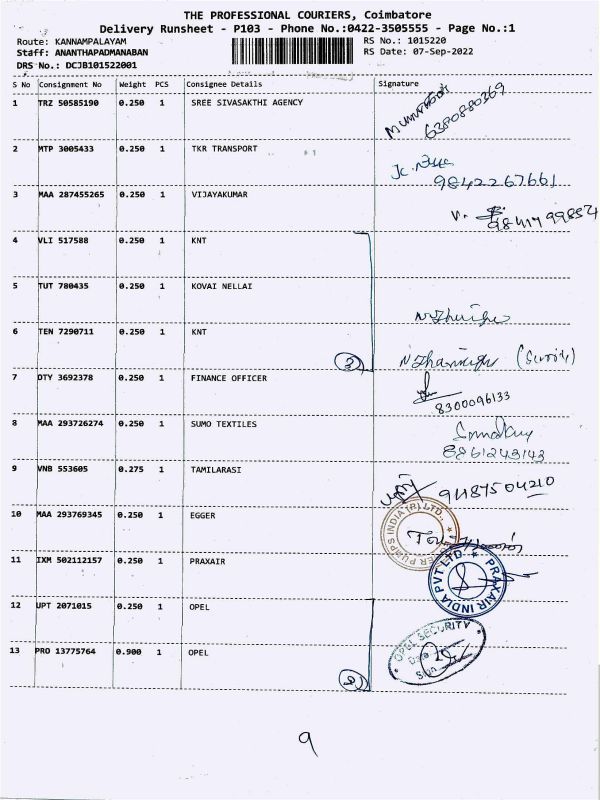 THE PROFESSIONAL COURIERS, Coimbatore
Delivery Runsheet - P103 - Phone No.:0422-3505555 - Page No.:1
Route: KANNAMPALAYAM RS No.: 1015220
Staff: ANANTHAPADMANABAN RS Date: 07-Sep-2022
DRS No.: DCJB101522001
S No Consignment No Weight PCS Consignee Details Signature
1 TRZ 50585190 0.250 1 SREE SIVASAKTHI AGENCY
6380880369
2 MTP 3005433 0.250 1 TKR TRANSPORT
9842267661
3 MAA 287455265 0.250 1 VIJAYAKUMAR
V.
4 VLI 517588 0.250 1 KNT
5 TUT 780435 0.250 1 KOVAI NELLAI
6 TEN 7290711 0.250 1 KNT
3
7 OTY 3692378 0.250 1 FINANCE OFFICER
8300096133
8 MAA 293726274 0.250 1 SUMO TEXTILES
8861243143
9 VNB 553605 0.275 1 TAMILARASI
9487504210
10 MAA 293769345 0.250 1 EGGER
PUMPS INDIA (P) LTD.,
11 IXM 502112157 0.250 1 PRAXAIR
PRAXAIR INDIA PVT LTD
12 UPT 2071015 0.250 1 OPEL
13 PRO 13775764 0.900 1 OPEL
OPEL SECURITY
Date
Sign
9